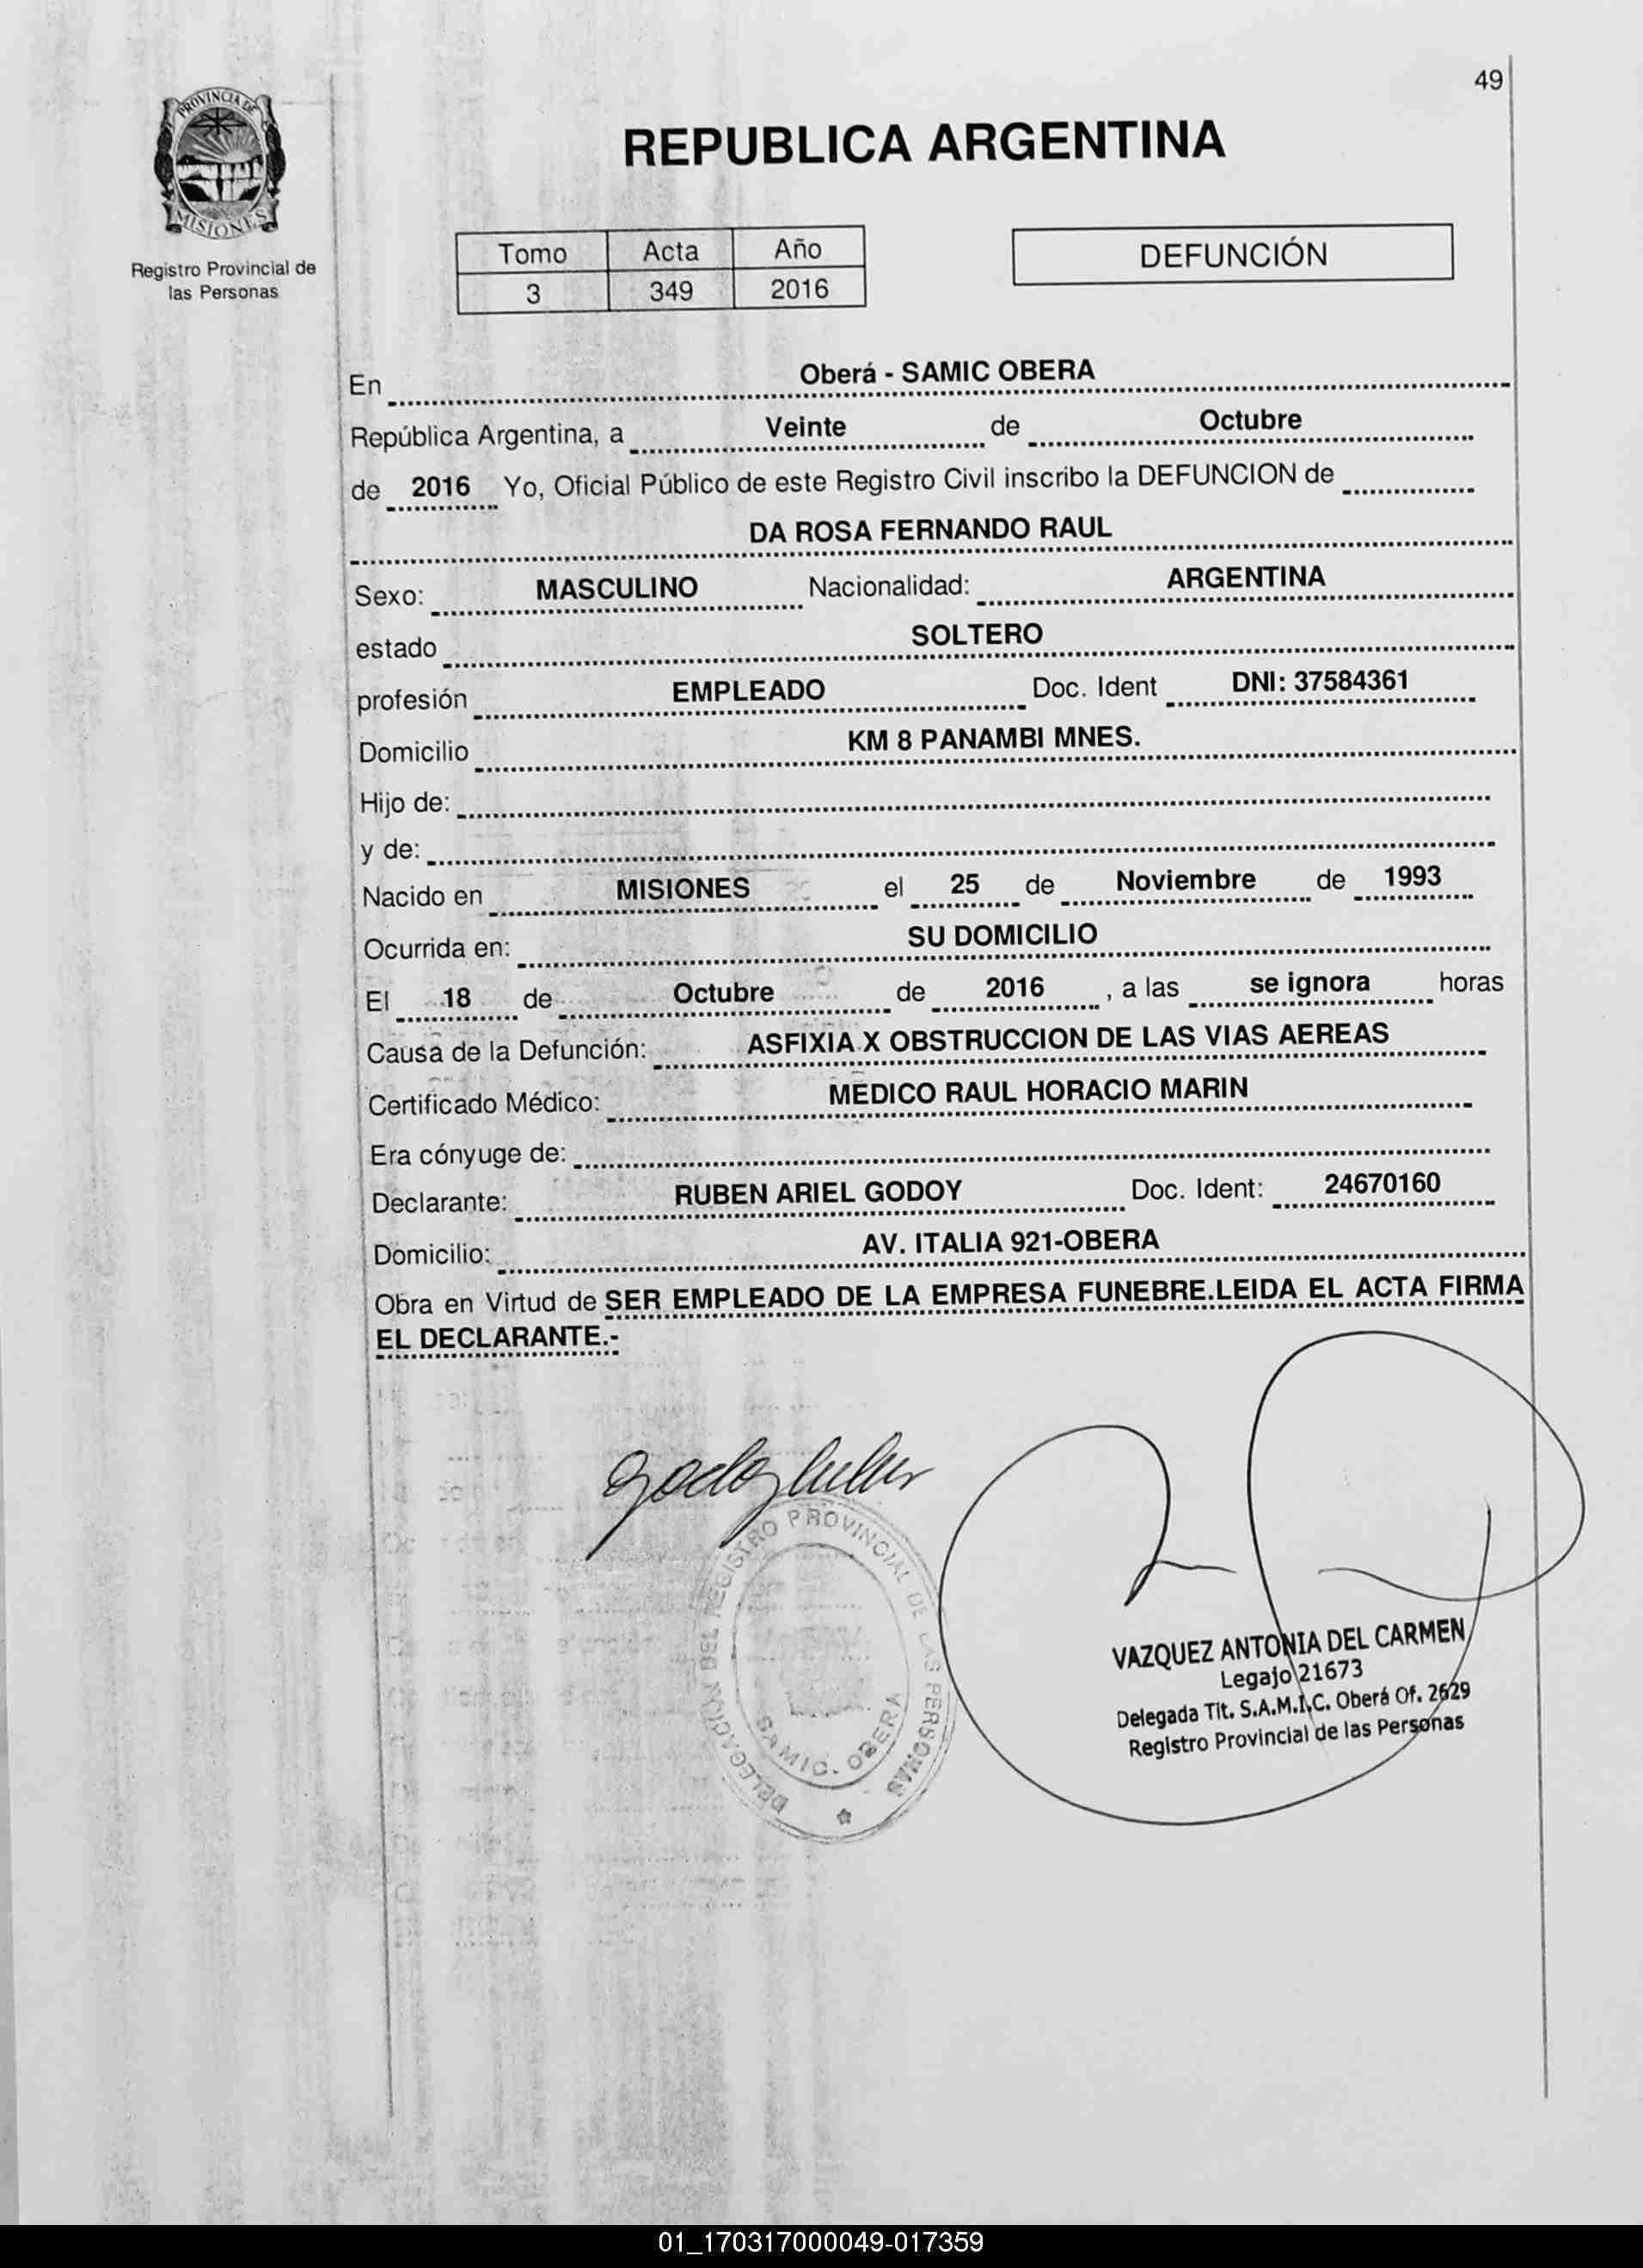 49
PROVINCIA DE
MISIONES
Registro Provincial de
las Personas
REPUBLICA ARGENTINA
Tomo Acta Año
3 349 2016
DEFUNCIÓN
En Oberá - SAMIC OBERA
República Argentina, a Veinte de Octubre
de 2016 Yo, Oficial Público de este Registro Civil inscribo la DEFUNCION de
DA ROSA FERNANDO RAUL
Sexo: MASCULINO Nacionalidad: ARGENTINA
estado SOLTERO
profesión EMPLEADO Doc. Ident DNI: 37584361
Domicilio KM 8 PANAMBI MNES.
Hijo de:
y de:
Nacido en MISIONES el 25 de Noviembre de 1993
Ocurrida en: SU DOMICILIO
El 18 de Octubre de 2016 , a las se ignora horas
Causa de la Defunción: ASFIXIA X OBSTRUCCION DE LAS VIAS AEREAS
Certificado Médico: MEDICO RAUL HORACIO MARIN
Era cónyuge de:
Declarante: RUBEN ARIEL GODOY Doc. Ident: 24670160
Domicilio: AV. ITALIA 921-OBERA
Obra en Virtud de SER EMPLEADO DE LA EMPRESA FUNEBRE.LEIDA EL ACTA FIRMA
EL DECLARANTE.-
DELEGACION DEL REGISTRO PROVINCIAL DE LAS PERSONAS
SAMIC. OBERA
VAZQUEZ ANTONIA DEL CARMEN
Legajo 21673
Delegada Tit. S.A.M.I.C. Oberá Of. 2629
Registro Provincial de las Personas
01_170317000049-017359